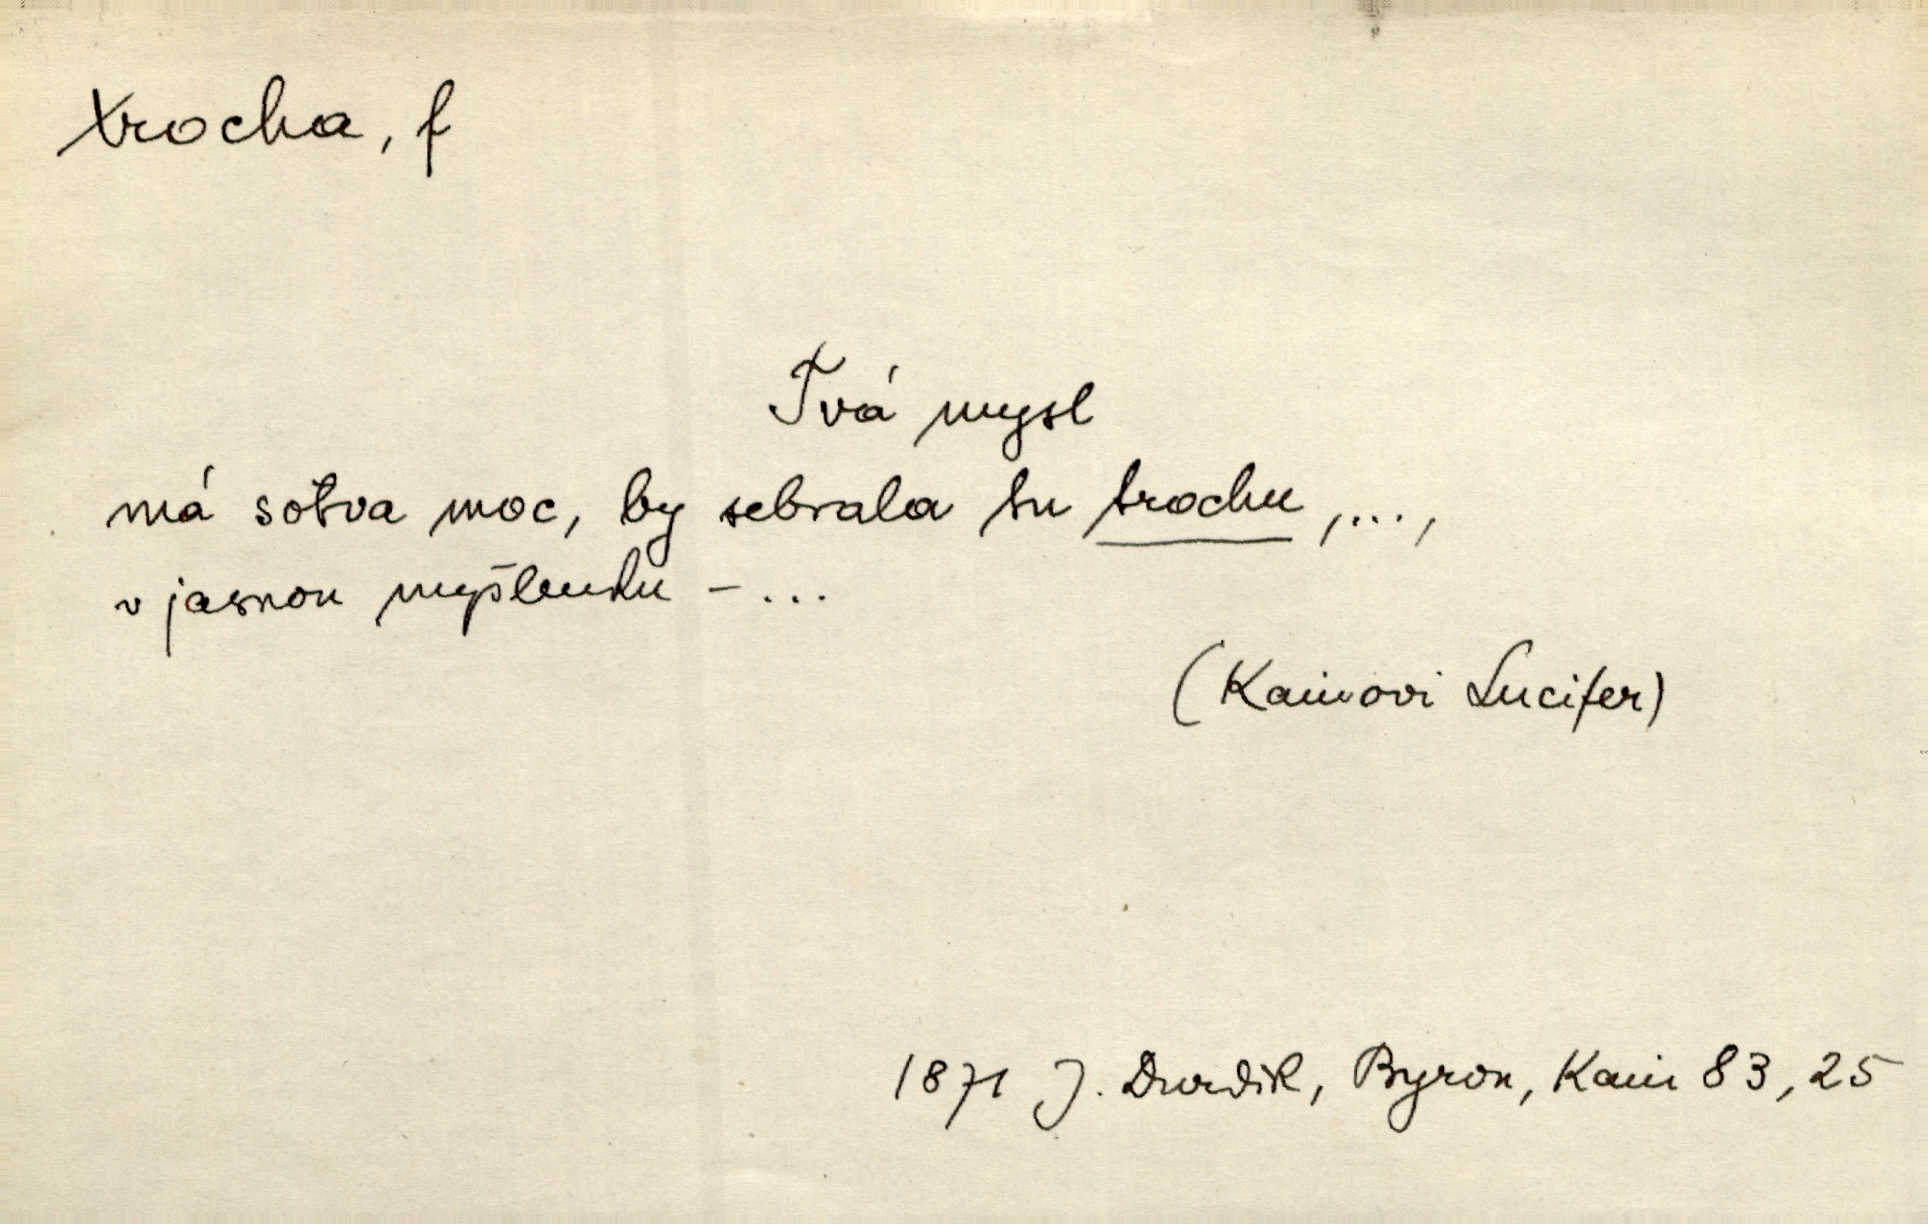 trocha, f
Tvá mysl
má sotva moc, by sebrala tu trochu,...,
v jasnou myšlenku - ...
(Kainovi Lucifer)
1871 J. Durdik, Byron, Kain 83, 25